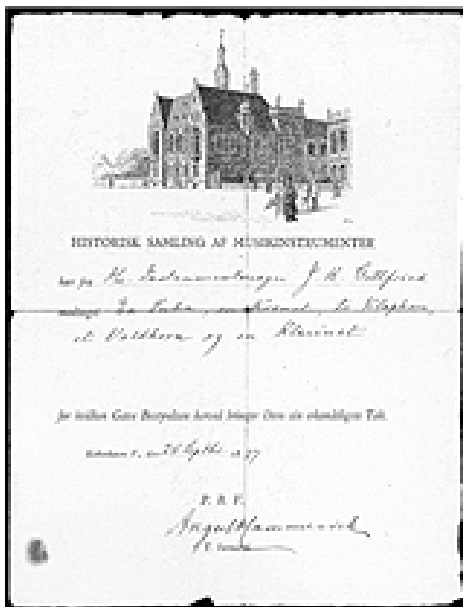 HISTORISK SAMLING AF MUSIKINSTRUMENTER
har fra Hr. Instrumentmager J. H. Gottfried
modtaget En Tuba, en
et Valdhorn og en Klarinet
for hvilken Gave Bestyrelsen herved bringer Dem sin erkendtligste Tak.
København
P. B. V.
Angul Hammerich